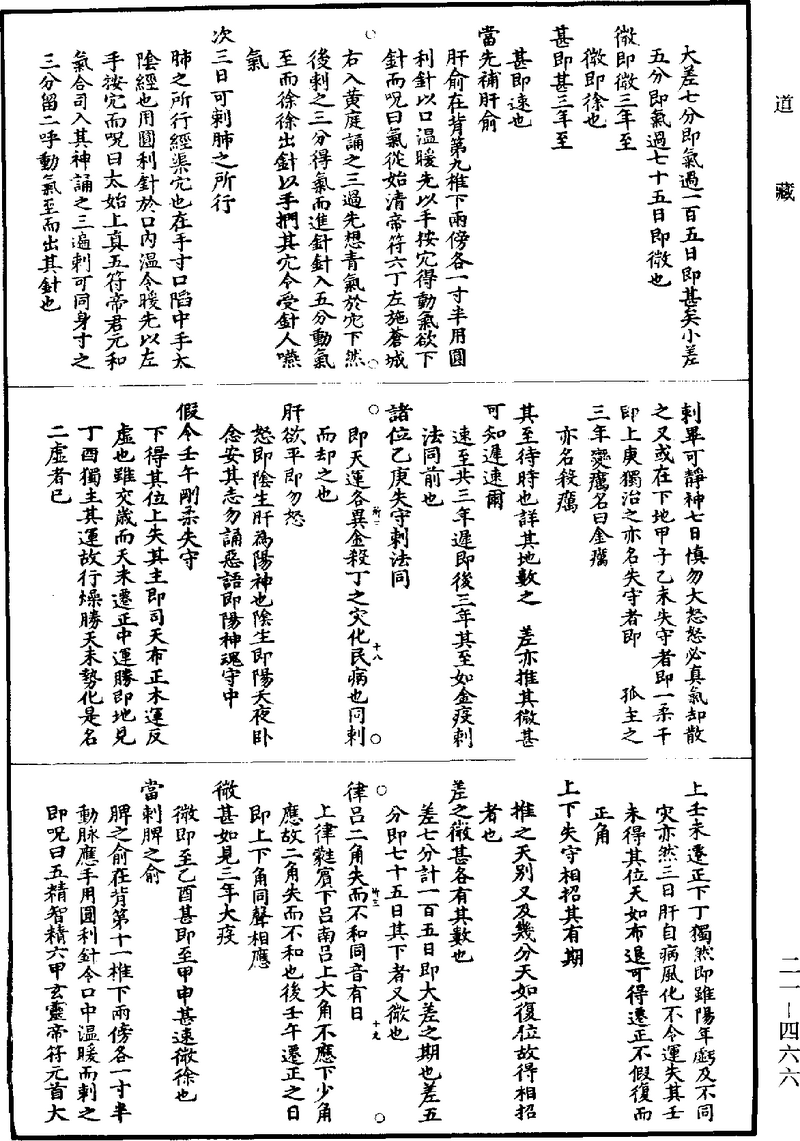 道藏
大差七分即氣過一百五日即甚矣小差
五分即氣過七十五日即微也
微即微三年至
微即徐也
甚即甚三年至
甚即速也
當先補肝俞
肝俞在背第九椎下兩傍各一寸半用圓
利針以口溫暖先以手按穴得動氣欲下
針而呪曰氣從始清帝符六丁左施蒼城
右入黃庭誦之三過先想青氣於穴下然
後刺之三分得氣而進針針入五分動氣
至而徐徐出針以手捫其穴令受針人嚥
氣
次三日可刺肺之所行
肺之所行經渠穴也在手寸口陷中手太
陰經也用圓利針於口內溫令暖先以左
手按穴而呪曰太始上真五符帝君元和
氣合司入其神誦之三遍刺可同身寸之
三分留二呼動氣至而出其針也
刺畢可靜神七日慎勿大怒怒必真氣却散
之又或在下地甲子乙未失守者即一柔干
即上庚獨治之亦名失守者即 孤主之
三年變癘名曰金癘
亦名殺癘
其至待時也詳其地數之 差亦推其微甚
可知遲速爾
速至共三年遲即後三年其至如金疫刺
法同前也
諸位乙庚失守刺法同
即天運各異金殺丁之灾化民病也同刺
而却之也
肝欲平即勿怒
怒即陰生肝為陽神也陰生即陽夭夜卧
念安其志勿誦惡語即陽神魂守中
假令壬午剛柔失守
下得其位上失其主即司天布正木運反
虛也雖交歲而天未遷正中運勝即地見
丁酉獨主其運故行燥勝天未勢化是名
二虛者已
上壬未遷正下丁獨然即雖陽年虧及不同
灾亦然三日肝自病風化不令運失其壬
未得其位天如布退可得遷正不假復而
正角
上下失守相招其有期
推之天別又及幾分天如復位故得相招
者也
差之微甚各有其數也
差七分計一百五日即大差之期也差五
分即七十五日其下者又微也
律呂二角失而不和同音有日
上律蕤賓下呂南呂上大角不應下少角
應故二角失而不和也後壬午遷正之日
即上下角同聲相應
微甚如見三年大疫
微即至乙酉甚即至甲申甚速微徐也
當刺脾之俞
脾之俞在背第十一椎下兩傍各一寸半
動脉應手用圓利針令口中溫暖而刺之
即呪曰五精智精六甲玄靈帝符元首太
二一－四六六